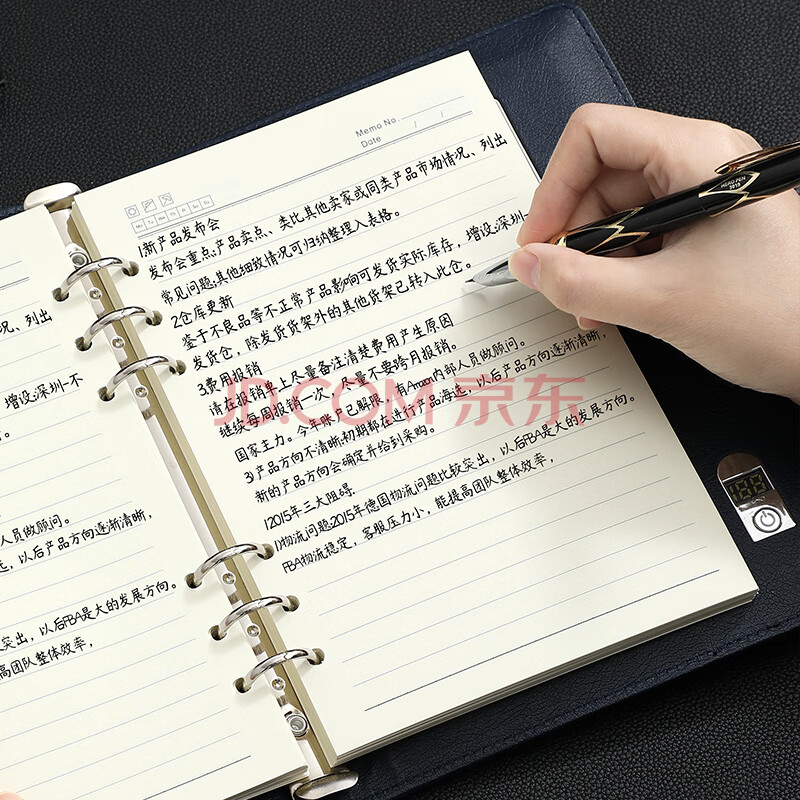 Memo No.
Date / /
Mo Tu We Th Fr Sa Su
1.新产品发布会
发布会重点:产品卖点、类比其他卖家或同类产品市场情况、列出
常见问题;其他细致情况可归纳整理入表格。
2仓库更新
鉴于不良品等不正常产品影响可发货实际库存，增设:深圳-
发货仓，除发货货架外的其他货架已转入此仓。
3.费用报销
请在报销单上尽量备注清楚费用产生原因
继续每周报销一次，尽量不要跨月报销。
国家主力。今年账户已解限，有Amazon内部人员做顾问。
3)产品方向不清晰:初期都在进行产品海选，以后产品方向逐渐清晰，
新的产品方向会确定并给到采购。
12015年三大阻碍:
1)物流问题:2015年德国物流问题比较突出，以后FBA是大的发展方向。
FBA物流稳定，客服压力小，能提高团队整体效率，
况、列出
增设:深圳-不
人员做顾问。
选，以后产品方向逐渐清晰，
突出，以后FBA是大的发展方向。
高团队整体效率，
HERO PEN
2015
188
JD.COM 京东